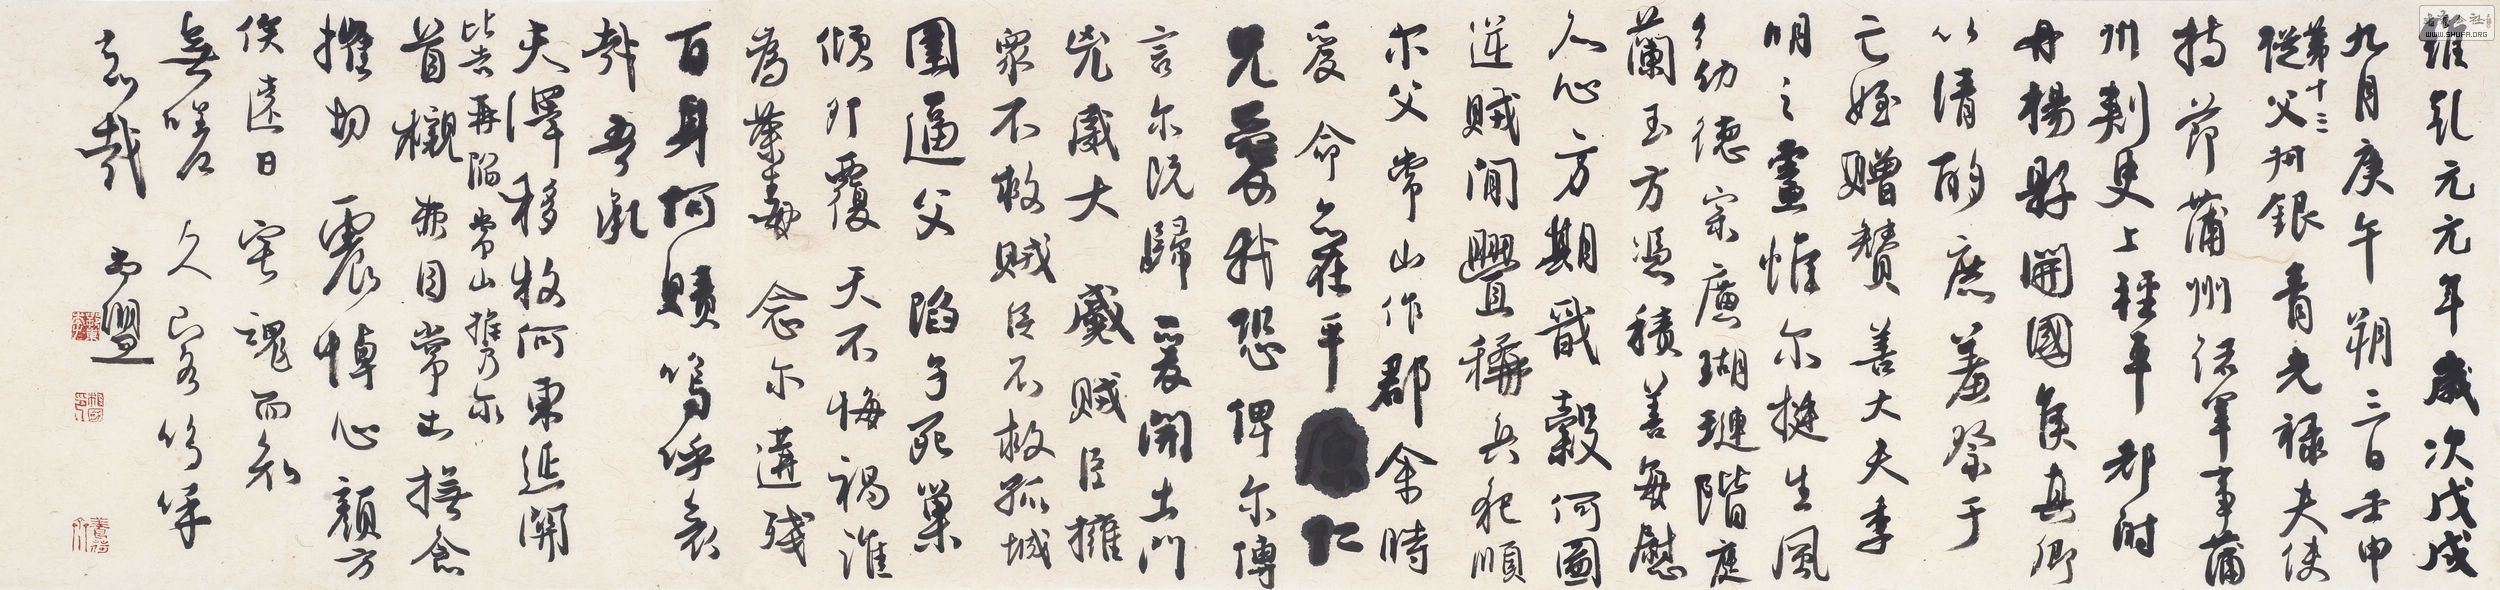 維乾元元年歲次戊戌
九月庚午朔三日壬申
第十三
從父州銀青光祿夫使
持節蒲州諸軍事蒲
州刺史上輕車都尉
丹楊縣開國侯真卿
以清酌庶羞祭于
亡姪贈贊善大夫季
明之靈惟尔挺生夙
幼德宗廟瑚璉階庭
蘭玉方憑積善每慰
人心方期戩穀何圖
逆賊閒舋稱兵犯順
尔父常山作郡余時
爰命亦在平原仁
兄愛我恐俾尔傳
言尔既歸爰開土門
兇威大蹙賊臣擁
衆不救賊臣不救孤城
圍逼父陷子死巢
傾卵覆天不悔禍誰
為荼毒念尔遘殘
百身何贖嗚呼哀
哉吾承
天澤移牧河東近關
比者再陷常山攜乃尔
首櫬亦目常出撫念
摧切震悼心顏方
俟遠日宅魂而知
無嗟久客嗚呼
哀哉
WWW.SHUFA.ORG